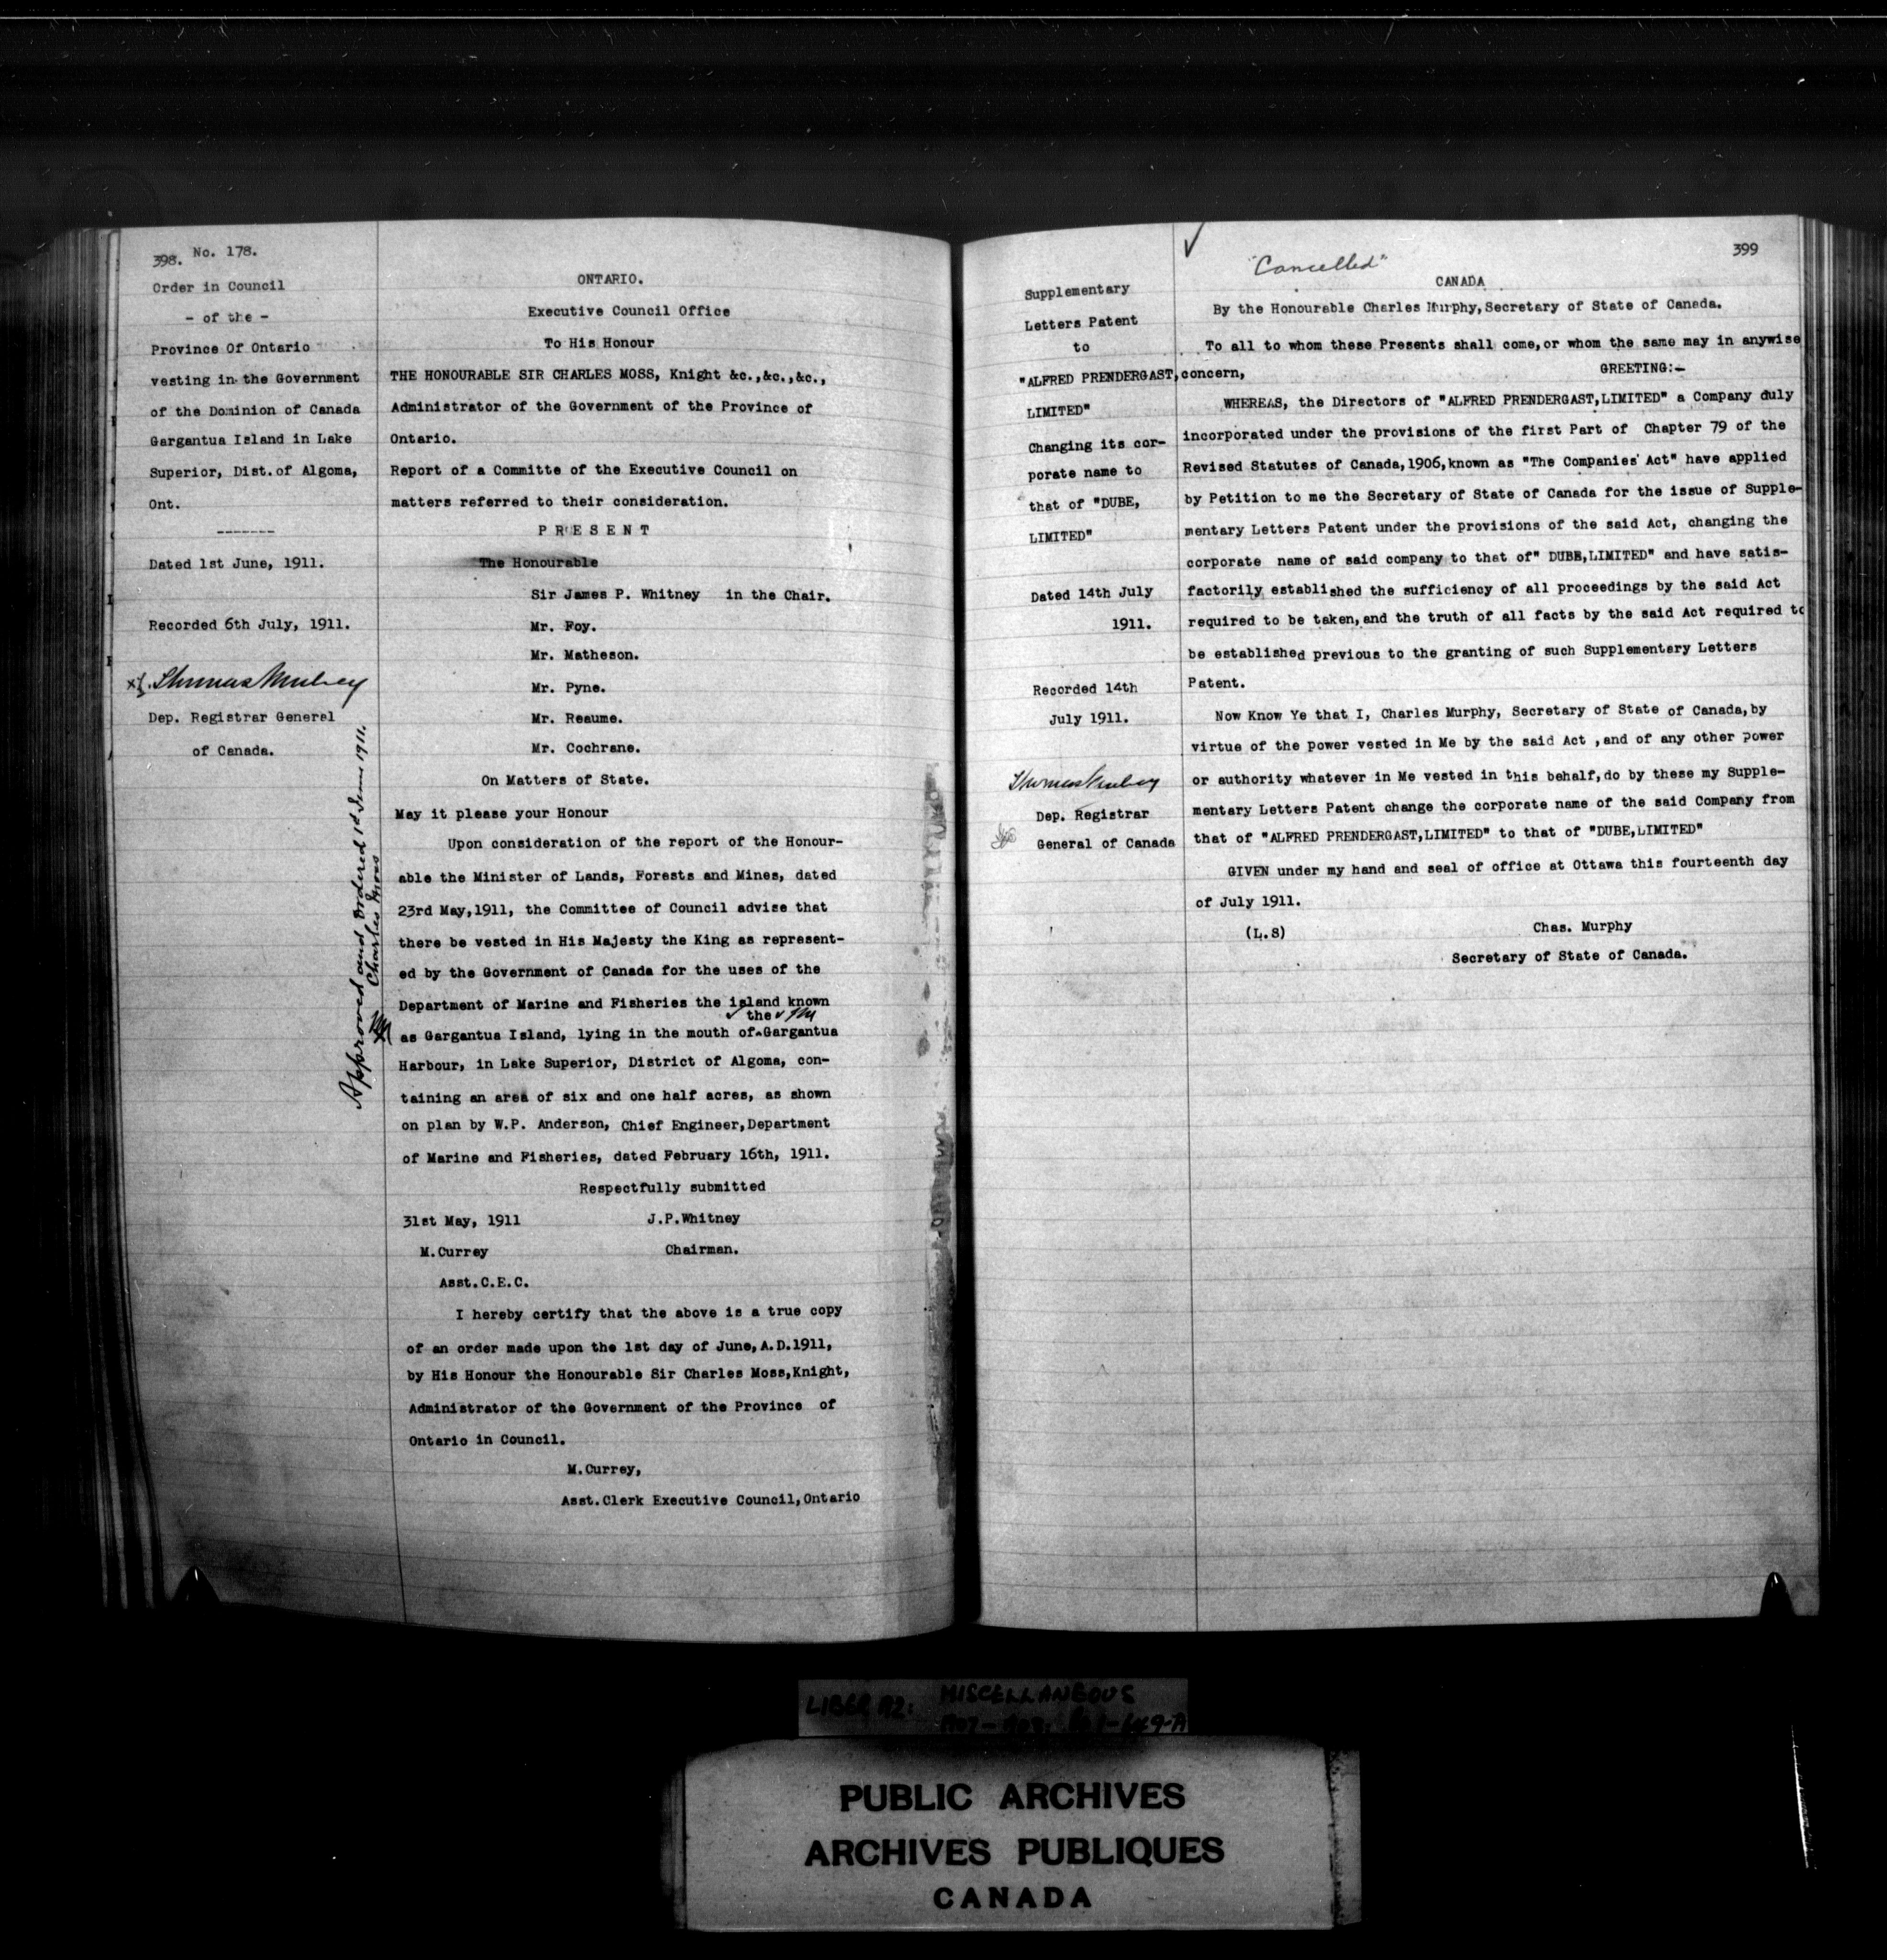 398. No. 178.
Order in Council
- of the -
Province Of Ontario
vesting in the Government
of the Dominion of Canada
Gargantua Island in Lake
Superior, Dist.of Algoma,
Ont.
-------
Dated 1st June, 1911.
Recorded 6th July, 1911.
Thomas Mulvey
Dep. Registrar General
of Canada.
Approved and Ordered 1st June 1911.
Charles Moss
ONTARIO.
Executive Council Office
To His Honour
THE HONOURABLE SIR CHARLES MOSS, Knight &c.,&c.,&c.,
Administrator of the Government of the Province of
Ontario.
Report of a Committe of the Executive Council on
matters referred to their consideration.
P R E S E N T
The Honourable
Sir James P. Whitney in the Chair.
Mr. Foy.
Mr. Matheson.
Mr. Pyne.
Mr. Reaume.
Mr. Cochrane.
On Matters of State.
May it please your Honour
Upon consideration of the report of the Honour-
able the Minister of Lands, Forests and Mines, dated
23rd May,1911, the Committee of Council advise that
there be vested in His Majesty the King as represent-
ed by the Government of Canada for the uses of the
Department of Marine and Fisheries the island known
the
as Gargantua Island, lying in the mouth of^Gargantua
Harbour, in Lake Superior, District of Algoma, con-
taining an area of six and one half acres, as shown
on plan by W.P. Anderson, Chief Engineer,Department
of Marine and Fisheries, dated February 16th, 1911.
Respectfully submitted
31st May, 1911 J.P.Whitney
M.Currey Chairman.
Asst.C.E.C.
I hereby certify that the above is a true copy
of an order made upon the 1st day of June,A.D.1911,
by His Honour the Honourable Sir Charles Moss,Knight,
Administrator of the Government of the Province of
Ontario in Council.
M.Currey,
Asst.Clerk Executive Council,Ontario
399
"Cancelled"
Supplementary
Letters Patent
to
"ALFRED PRENDERGAST,
LIMITED"
Changing its cor-
porate name to
that of "DUBE,
LIMITED"
Dated 14th July
1911.
Recorded 14th
July 1911.
Thomas Mulvey
Dep. Registrar
General of Canada
CANADA
By the Honourable Charles Murphy,Secretary of State of Canada.
To all to whom these Presents shall come,or whom the same may in anywise
concern, GREETING:-
WHEREAS, the Directors of "ALFRED PRENDERGAST,LIMITED" a Company duly
incorporated under the provisions of the first Part of Chapter 79 of the
Revised Statutes of Canada,1906,known as "The Companies' Act" have applied
by Petition to me the Secretary of State of Canada for the issue of Supple-
mentary Letters Patent under the provisions of the said Act, changing the
corporate name of said company to that of" DUBE,LIMITED" and have satis-
factorily established the sufficiency of all proceedings by the said Act
required to be taken,and the truth of all facts by the said Act required to
be established previous to the granting of such Supplementary Letters
Patent.
Now Know Ye that I, Charles Murphy, Secretary of State of Canada,by
virtue of the power vested in Me by the said Act ,and of any other power
or authority whatever in Me vested in this behalf,do by these my Supple-
mentary Letters Patent change the corporate name of the said Company from
that of "ALFRED PRENDERGAST,LIMITED" to that of "DUBE,LIMITED"
GIVEN under my hand and seal of office at Ottawa this fourteenth day
of July 1911.
(L.S) Chas. Murphy
Secretary of State of Canada.
LIBER MISCELLANEOUS
PUBLIC ARCHIVES
ARCHIVES PUBLIQUES
CANADA